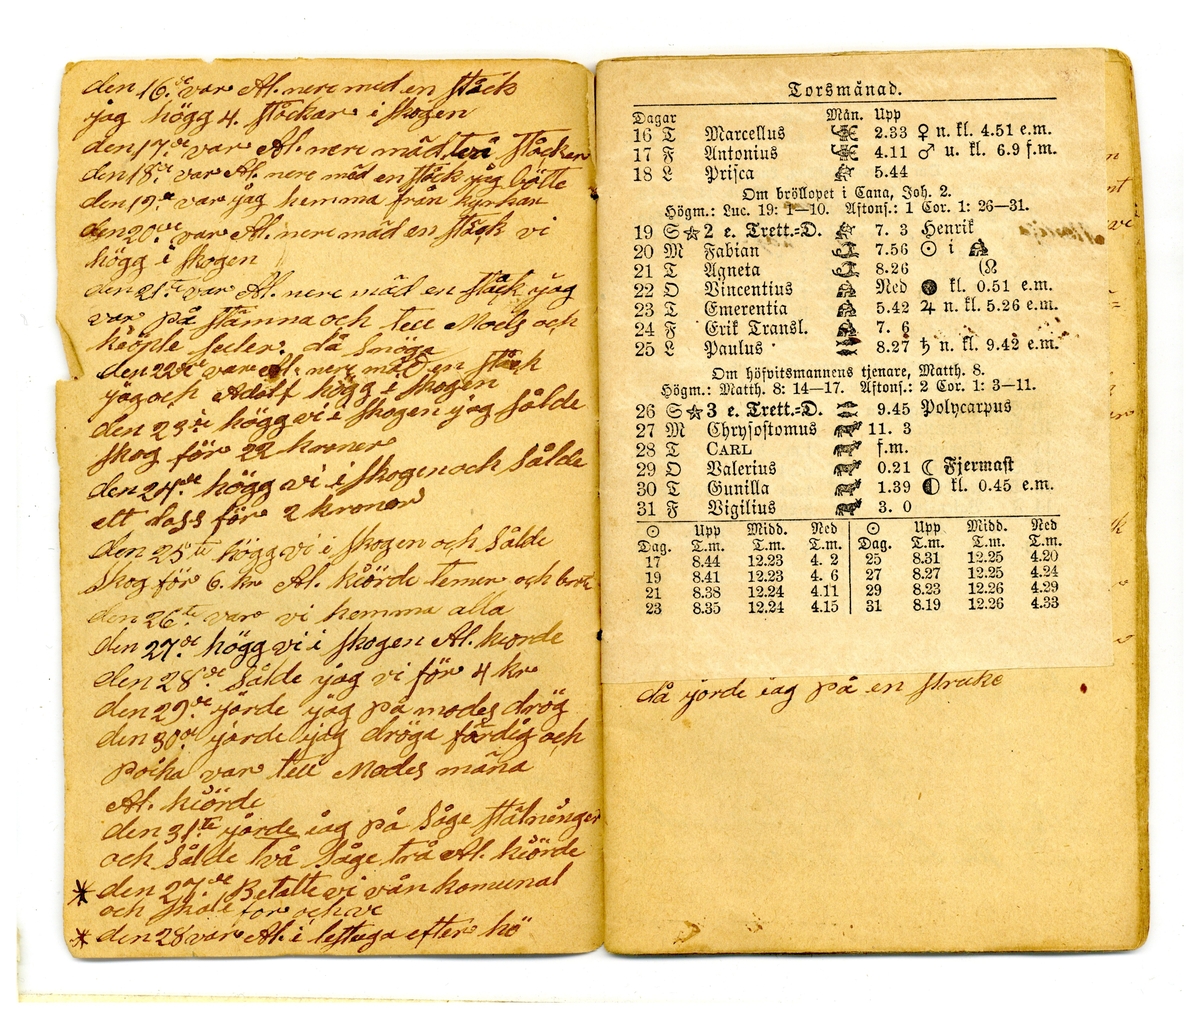 den 16.de var Al. nere med en stäck
jag högg 4. stockar i skogen
den 17.de var Al. nere mäd två stäcker
den 18.de var Al. nere mäd en stäck jag bötte
den 19.de var jag hemma från kyrkan
den 20.de var Al. nere mäd en stäck vi
högg i skogen
den 21.te var Al. nere mäd en stäck jag
var på stämna och tell Modes och
kiöpte seler. då snöga
den 22de var Al. nere mäd en stäck
jag och Adolf högg i skogen
den 23de högg vi i skogen jag sålde
skog för 22 kroner
den 24.de högg vi i skogen och sålde
ett lass för 2 kronor
den 25te högg vi i skogen och sålde
skog för 6. kr Al. kiörde temer och
den 26te var vi hemma alla
den 27.de högg vi i skogen Al. kiörde
den 28.de sålde jag vi för 4 kr
den 29.de jörde jag på modes drög
den 30de jörde jag dröga färdig och
Poika var tell Modes mäna
Al. kiörde
den 31.te jörde iag på såge stälnінger
och sålde två såge trå Al. kiörde
* den 27.de Betalte vi vån komunal
och skale for och vi
* den 28 var Al. i lestuga efter hö
Torsmånad.
Dagar Mån. Upp
16 T Marcellus 2.33 ♀ n. kl. 4.51 e.m.
17 F Antonius 4.11 ♂ u. kl. 6.9 f.m.
18 L Prisca 5.44
Om bröllopet i Cana, Joh. 2.
Högm.: Luc. 19: 1—10. Aftons.: 1 Cor. 1: 26—31.
19 S ☆ 2 e. Trett.=D. 7. 3 Henrik
20 M Fabian 7.56 ☉ i ♒
21 T Agneta 8.26 (☊
22 O Vincentius Ned ● kl. 0.51 e.m.
23 T Emerentia 5.42 ♃ n. kl. 5.26 e.m.
24 F Erik Transl. 7. 6
25 L Paulus 8.27 ♄ n. kl. 9.42 e.m.
Om höfvitsmannens tjenare, Matth. 8.
Högm.: Matth. 8: 14—17. Aftons.: 2 Cor. 1: 3—11.
26 S ☆ 3 e. Trett.=D. 9.45 Polycarpus
27 M Chrysostomus 11. 3
28 T CARL f.m.
29 O Valerius 0.21 ☾ Fjermast
30 T Gunilla 1.39 ◐ kl. 0.45 e.m.
31 F Vigilius 3. 0
☉ Upp Midd. Ned ☉ Upp Midd. Ned
Dag. T.m. T.m. T.m. Dag. T.m. T.m. T.m.
17 8.44 12.23 4. 2 25 8.31 12.25 4.20
19 8.41 12.23 4. 6 27 8.27 12.25 4.24
21 8.38 12.24 4.11 29 8.23 12.26 4.29
23 8.35 12.24 4.15 31 8.19 12.26 4.33
då jörde iag på en strake